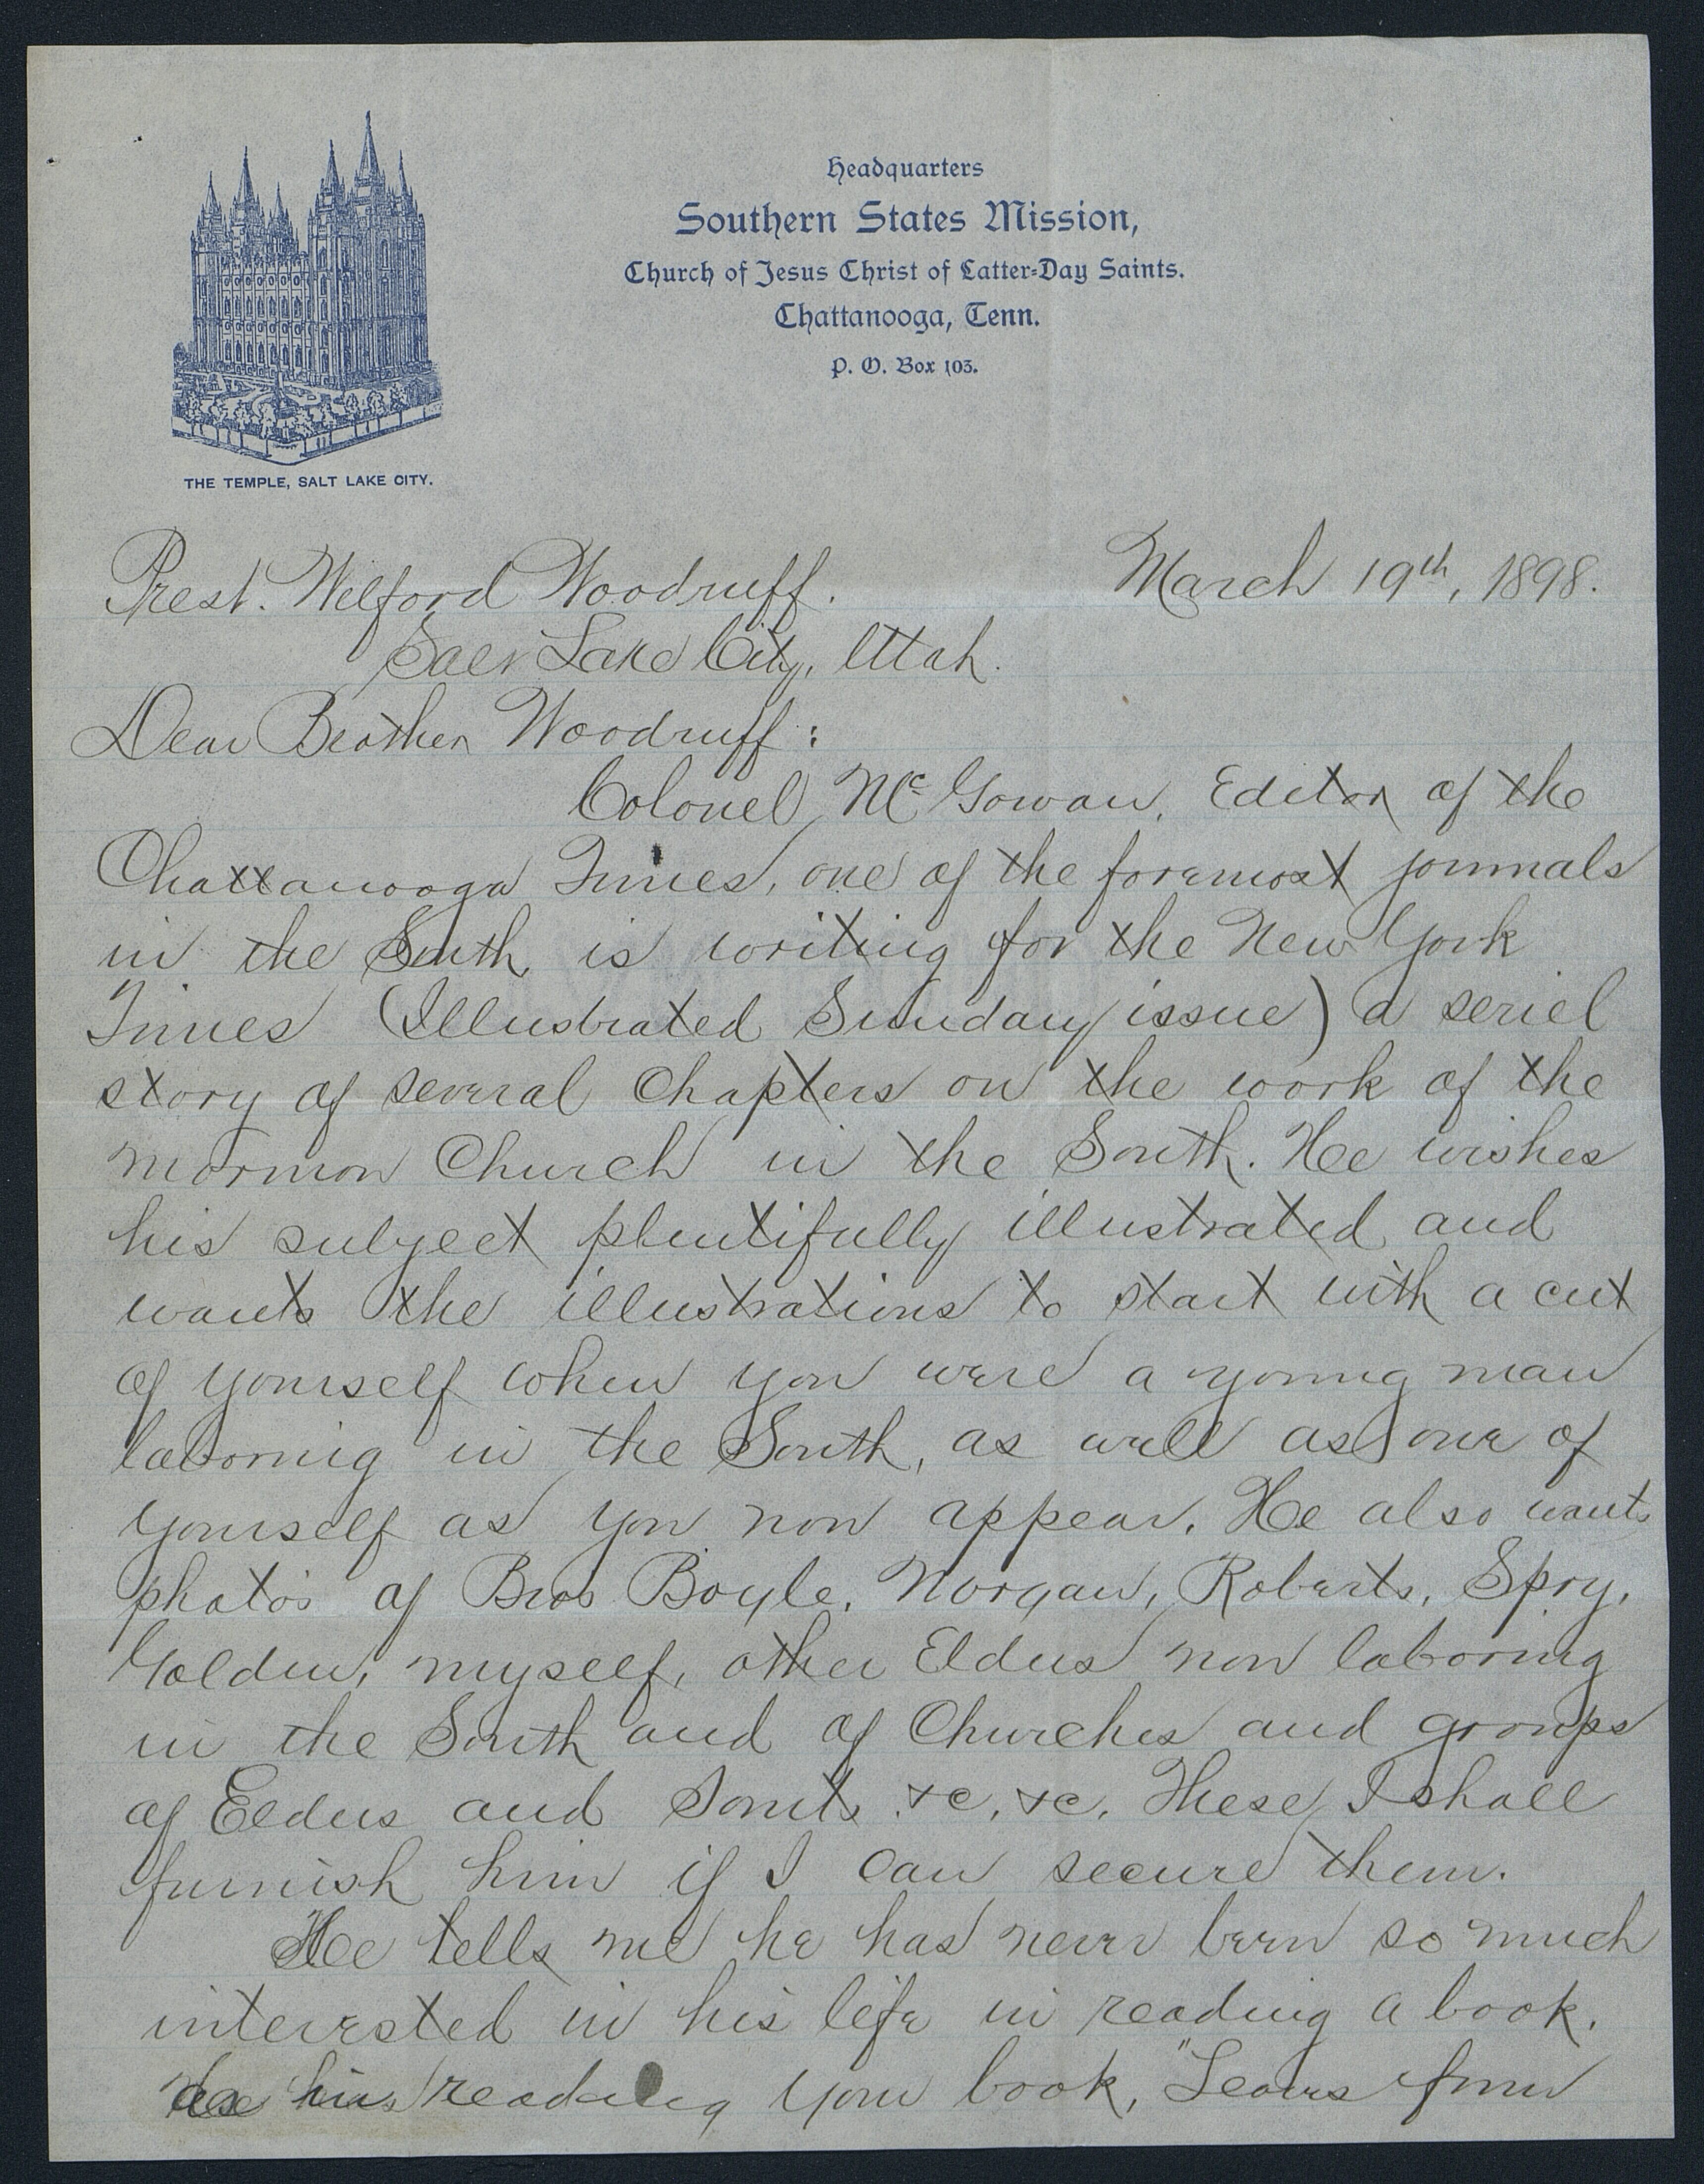 Headquarters
Southern States Mission,
Church of Jesus Christ of Latter-Day Saints.
Chattanooga, Tenn.
P. O. Box 103.
THE TEMPLE, SALT LAKE CITY.
March 19th, 1898.
Prest. Wilford Woodruff.
Salt Lake City, Utah.
Dear Brother Woodruff:
Colonel McGowan, Editor of the
Chattanooga Times, one of the foremost journals
in the South, is writing for the New York
Times (Illustrated Sunday issue) a seriel
story of several Chapters on the work of the
Mormon Church in the South. He wishes
his subject plentifully illustrated and
wants the illustrations to start with a cut
of yourself when you were a young man
laboring in the South, as well as one of
yourself as you now appear. He also wants
photo's of Bros Boyle, Morgan, Roberts, Spry,
Golden, myself, other Elders now laboring
in the South and of Churches and groups
of Elders and Saints &c, &c. These I shall
furnish him if I can secure them.
He tells me he has never been so much
interested in his life in reading a book,
as in reading your book, "Leaves from